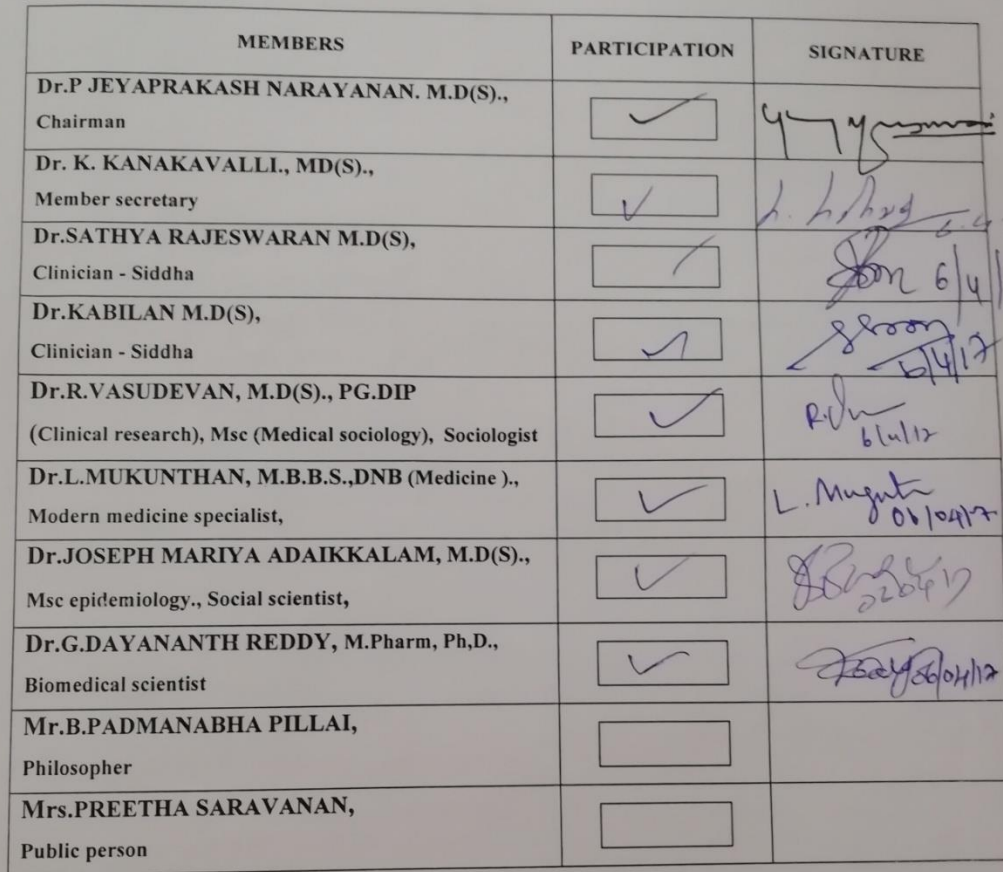 MEMBERS PARTICIPATION SIGNATURE
Dr.P JEYAPRAKASH NARAYANAN. M.D(S).,
Chairman
Dr. K. KANAKAVALLI., MD(S).,
Member secretary
Dr.SATHYA RAJESWARAN M.D(S),
Clinician - Siddha
6/4/
Dr.KABILAN M.D(S),
Clinician - Siddha
6/4/17
Dr.R.VASUDEVAN, M.D(S)., PG.DIP
(Clinical research), Msc (Medical sociology), Sociologist
6/4/17
Dr.L.MUKUNTHAN, M.B.B.S.,DNB (Medicine ).,
Modern medicine specialist,
06/04/17
Dr.JOSEPH MARIYA ADAIKKALAM, M.D(S).,
Msc epidemiology., Social scientist,
Dr.G.DAYANANTH REDDY, M.Pharm, Ph,D.,
Biomedical scientist
06/04/17
Mr.B.PADMANABHA PILLAI,
Philosopher
Mrs.PREETHA SARAVANAN,
Public person